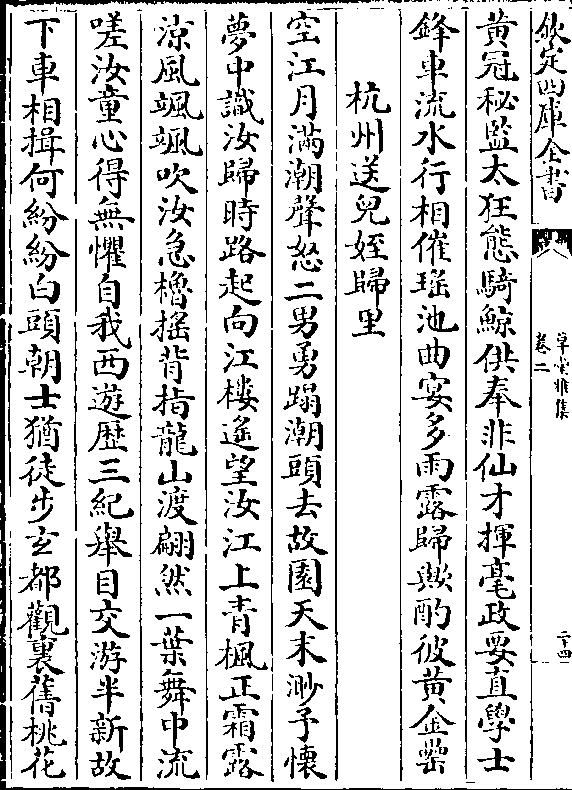 欽定四庫全書
草堂雅集
卷二
二十四
黃冠秘監太狂態騎鯨供奉非仙才揮毫政要直學士
鋒車流水行相催瑶池曲宴多雨露歸歟酌彼黃金罍
杭州送兒姪歸里
空江月滿潮聲怒二男勇蹋潮頭去故園天末渺予懷
夢中識汝歸時路起向江樓遙望汝江上青楓正霜露
涼風颯颯吹汝急櫓搖背指龍山渡翩然一葉舞中流
嗟汝童心得無懼自我西遊歷三紀舉目交游半新故
下車相揖何紛紛白頭朝士猶徒步玄都觀裏舊桃花